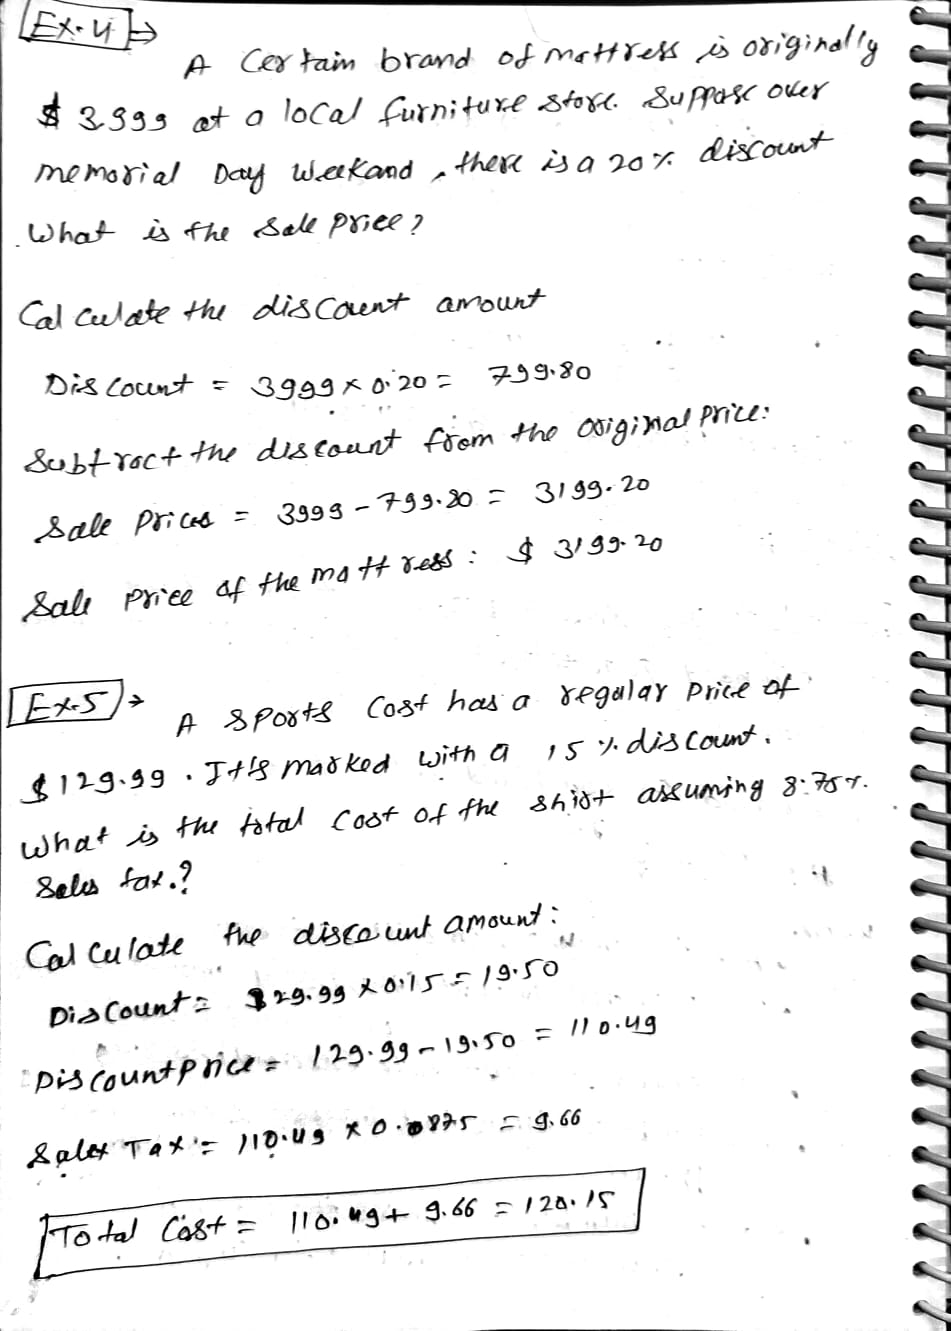 Ex. 4 →
A Certain brand of mattress is originally
$ 3999 at a local furniture store. Suppose over
memorial Day Weekand, there is a 20% discount
. What is the Sale Price?
Calculate the discount amount
Discount = 3999 x 0.20 = 799.80
Subtract the discount from the original price:
Sale Prices = 3999 - 799.80 = 3199.20
Sale Price of the mattress : $ 3199.20
Ex-5 →
A sports Cost has a regular price of
$129.99. It's marked with a 15% discount.
What is the total Cost of the shirt assuming 8.75%.
Sales tax.?
Calculate the discount amount:
Discount = 129.99 x 0.15 = 19.50
Discount price = 129.99 - 19.50 = 110.49
Sales Tax = 110.49 x 0.0875 = 9.66
Total Cost = 110.49 + 9.66 = 120.15